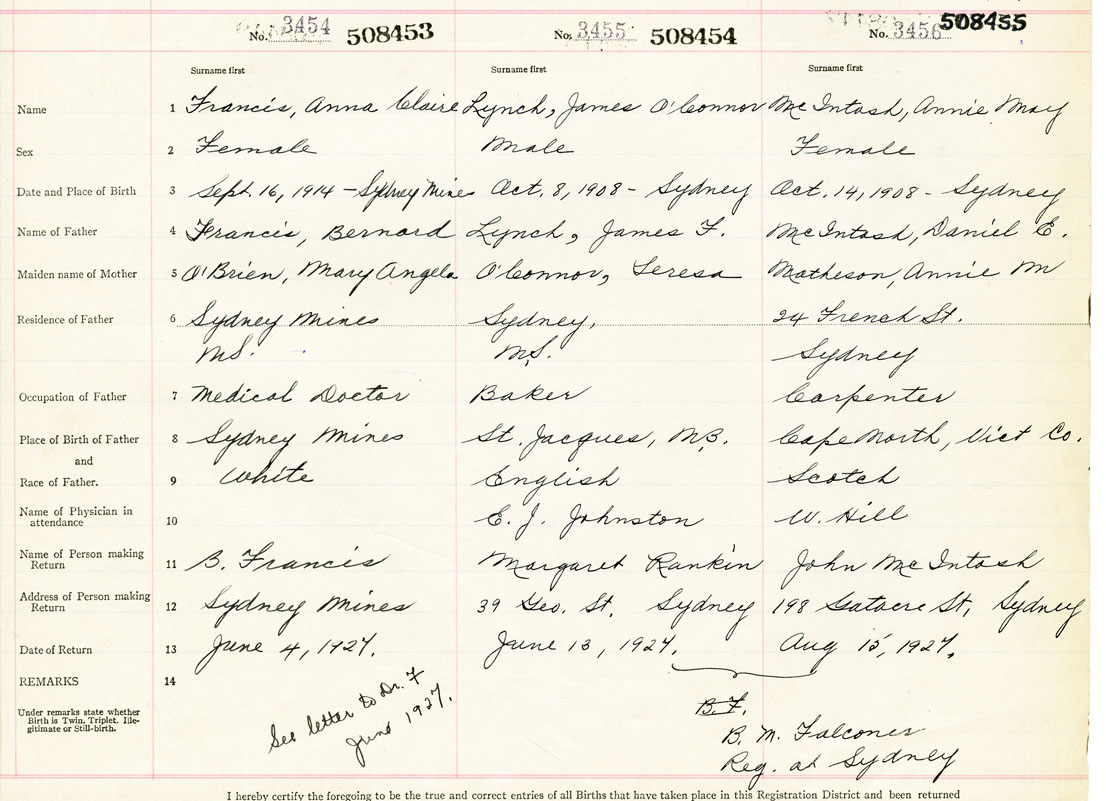 No. 3454 508453 No. 3455 508454 No. 3456 508455
Surname first Surname first Surname first
Name 1 Francis, Anna Claire Lynch, James O'Connor McIntosh, Annie May
Sex 2 Female Male Female
Date and Place of Birth 3 Sept. 16, 1914 - Sydney Mines Oct. 8, 1908 - Sydney Oct. 14, 1908 - Sydney
Name of Father 4 Francis, Bernard Lynch, James F. McIntosh, Daniel E.
Maiden name of Mother 5 O'Brien, Mary Angela O'Connor, Teresa Matheson, Annie M
Residence of Father 6 Sydney Mines Sydney, 24 French St.
N.S. N.S. Sydney
Occupation of Father 7 Medical Doctor Baker Carpenter
Place of Birth of Father 8 Sydney Mines St. Jacques, N.B. Cape North, Vict Co.
and
Race of Father. 9 White English Scotch
Name of Physician in
attendance 10 E. J. Johnston W. Hill
Name of Person making
Return 11 B. Francis Margaret Rankin John McIntosh
Address of Person making
Return 12 Sydney Mines 39 Geo. St. Sydney 198 Gatacre St, Sydney
Date of Return 13 June 4, 1927. June 13, 1927. Aug 15, 1927.
REMARKS 14
Under remarks state whether
Birth is Twin, Triplet, Ille-
gitimate or Still-birth.
See letter to Dr. F
June 1927.
B. F.
B. M. Falconer
Reg. at Sydney
I hereby certify the foregoing to be the true and correct entries of all Births that have taken place in this Registration District and been returned